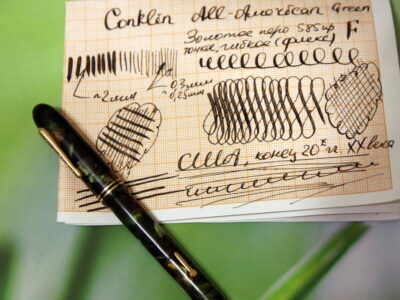 Conklin All-American Green
Золотое перо 585пр
точка, гибкое (флекс) F
~2мм
0,3мм
~0,25мм
США, конец 20х гг. XX века